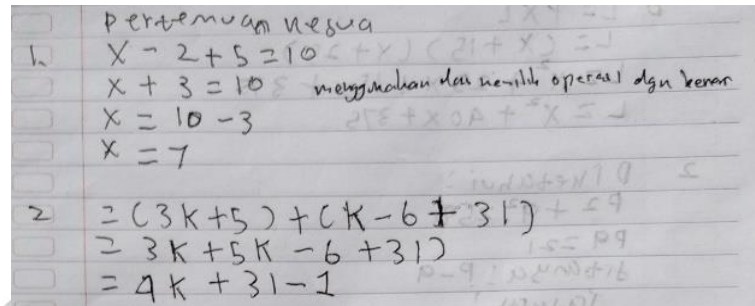 Pertemuan kedua
1. x - 2 + 5 = 10
x + 3 = 10 menggunakan dan memilih operasi dgn benar
x = 10 - 3
x = 7
2 = (3k+5) + (k - 6 + 31)
= 3k + 5k - 6 + 31)
= 4k + 31 - 1